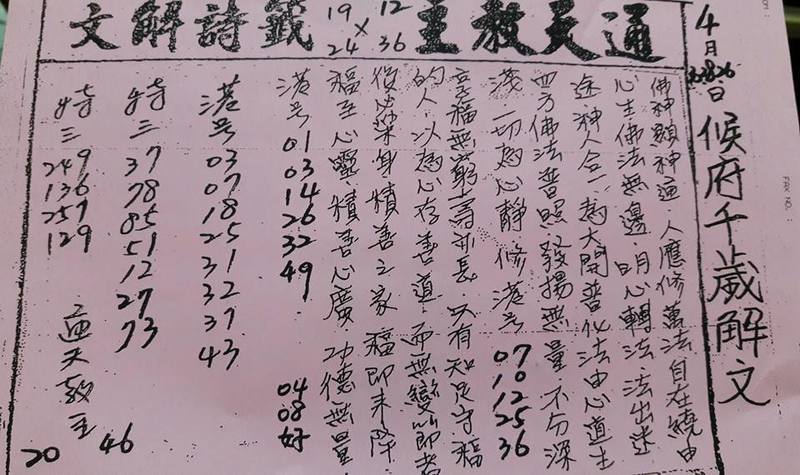 通天教主 12 36 × 19 24 籤詩解文
4月 日 候府千歲解文
佛神顯神通.人應修萬法自在繞由
心生佛法無邊.明心轉法.法出迷
途神人合一.大開普化法由心道生
四方佛法普照發揚無量 不分深
淺一切 心靜.修港号 07 10 12 25 36
享福無窮壽亦長 只有知足守福
的人.以 心存善道.而無變
後 積善之家 福即來降
福至心靈.積善心廣 功德無量
港号 01 03 14 26 32 49 04 08 好
港号 03 07 18 25 31 32 37 43
特三 37 78 85 51 12 27 73 46
特三 249 136 257 129 通天教主
20